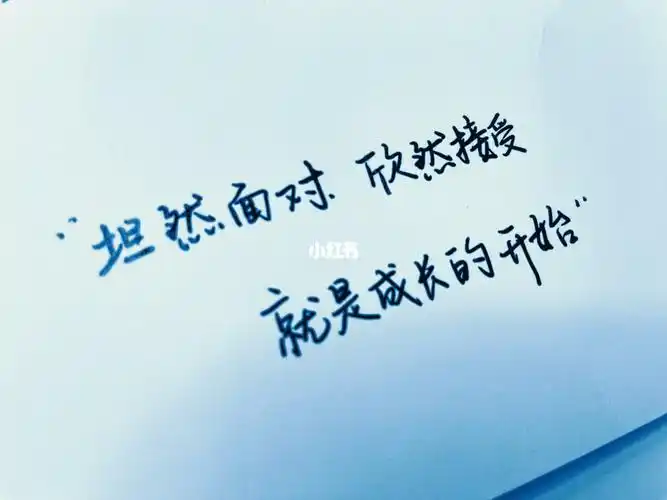 “坦然面对.欣然接受
小红书
就是成长的开始”